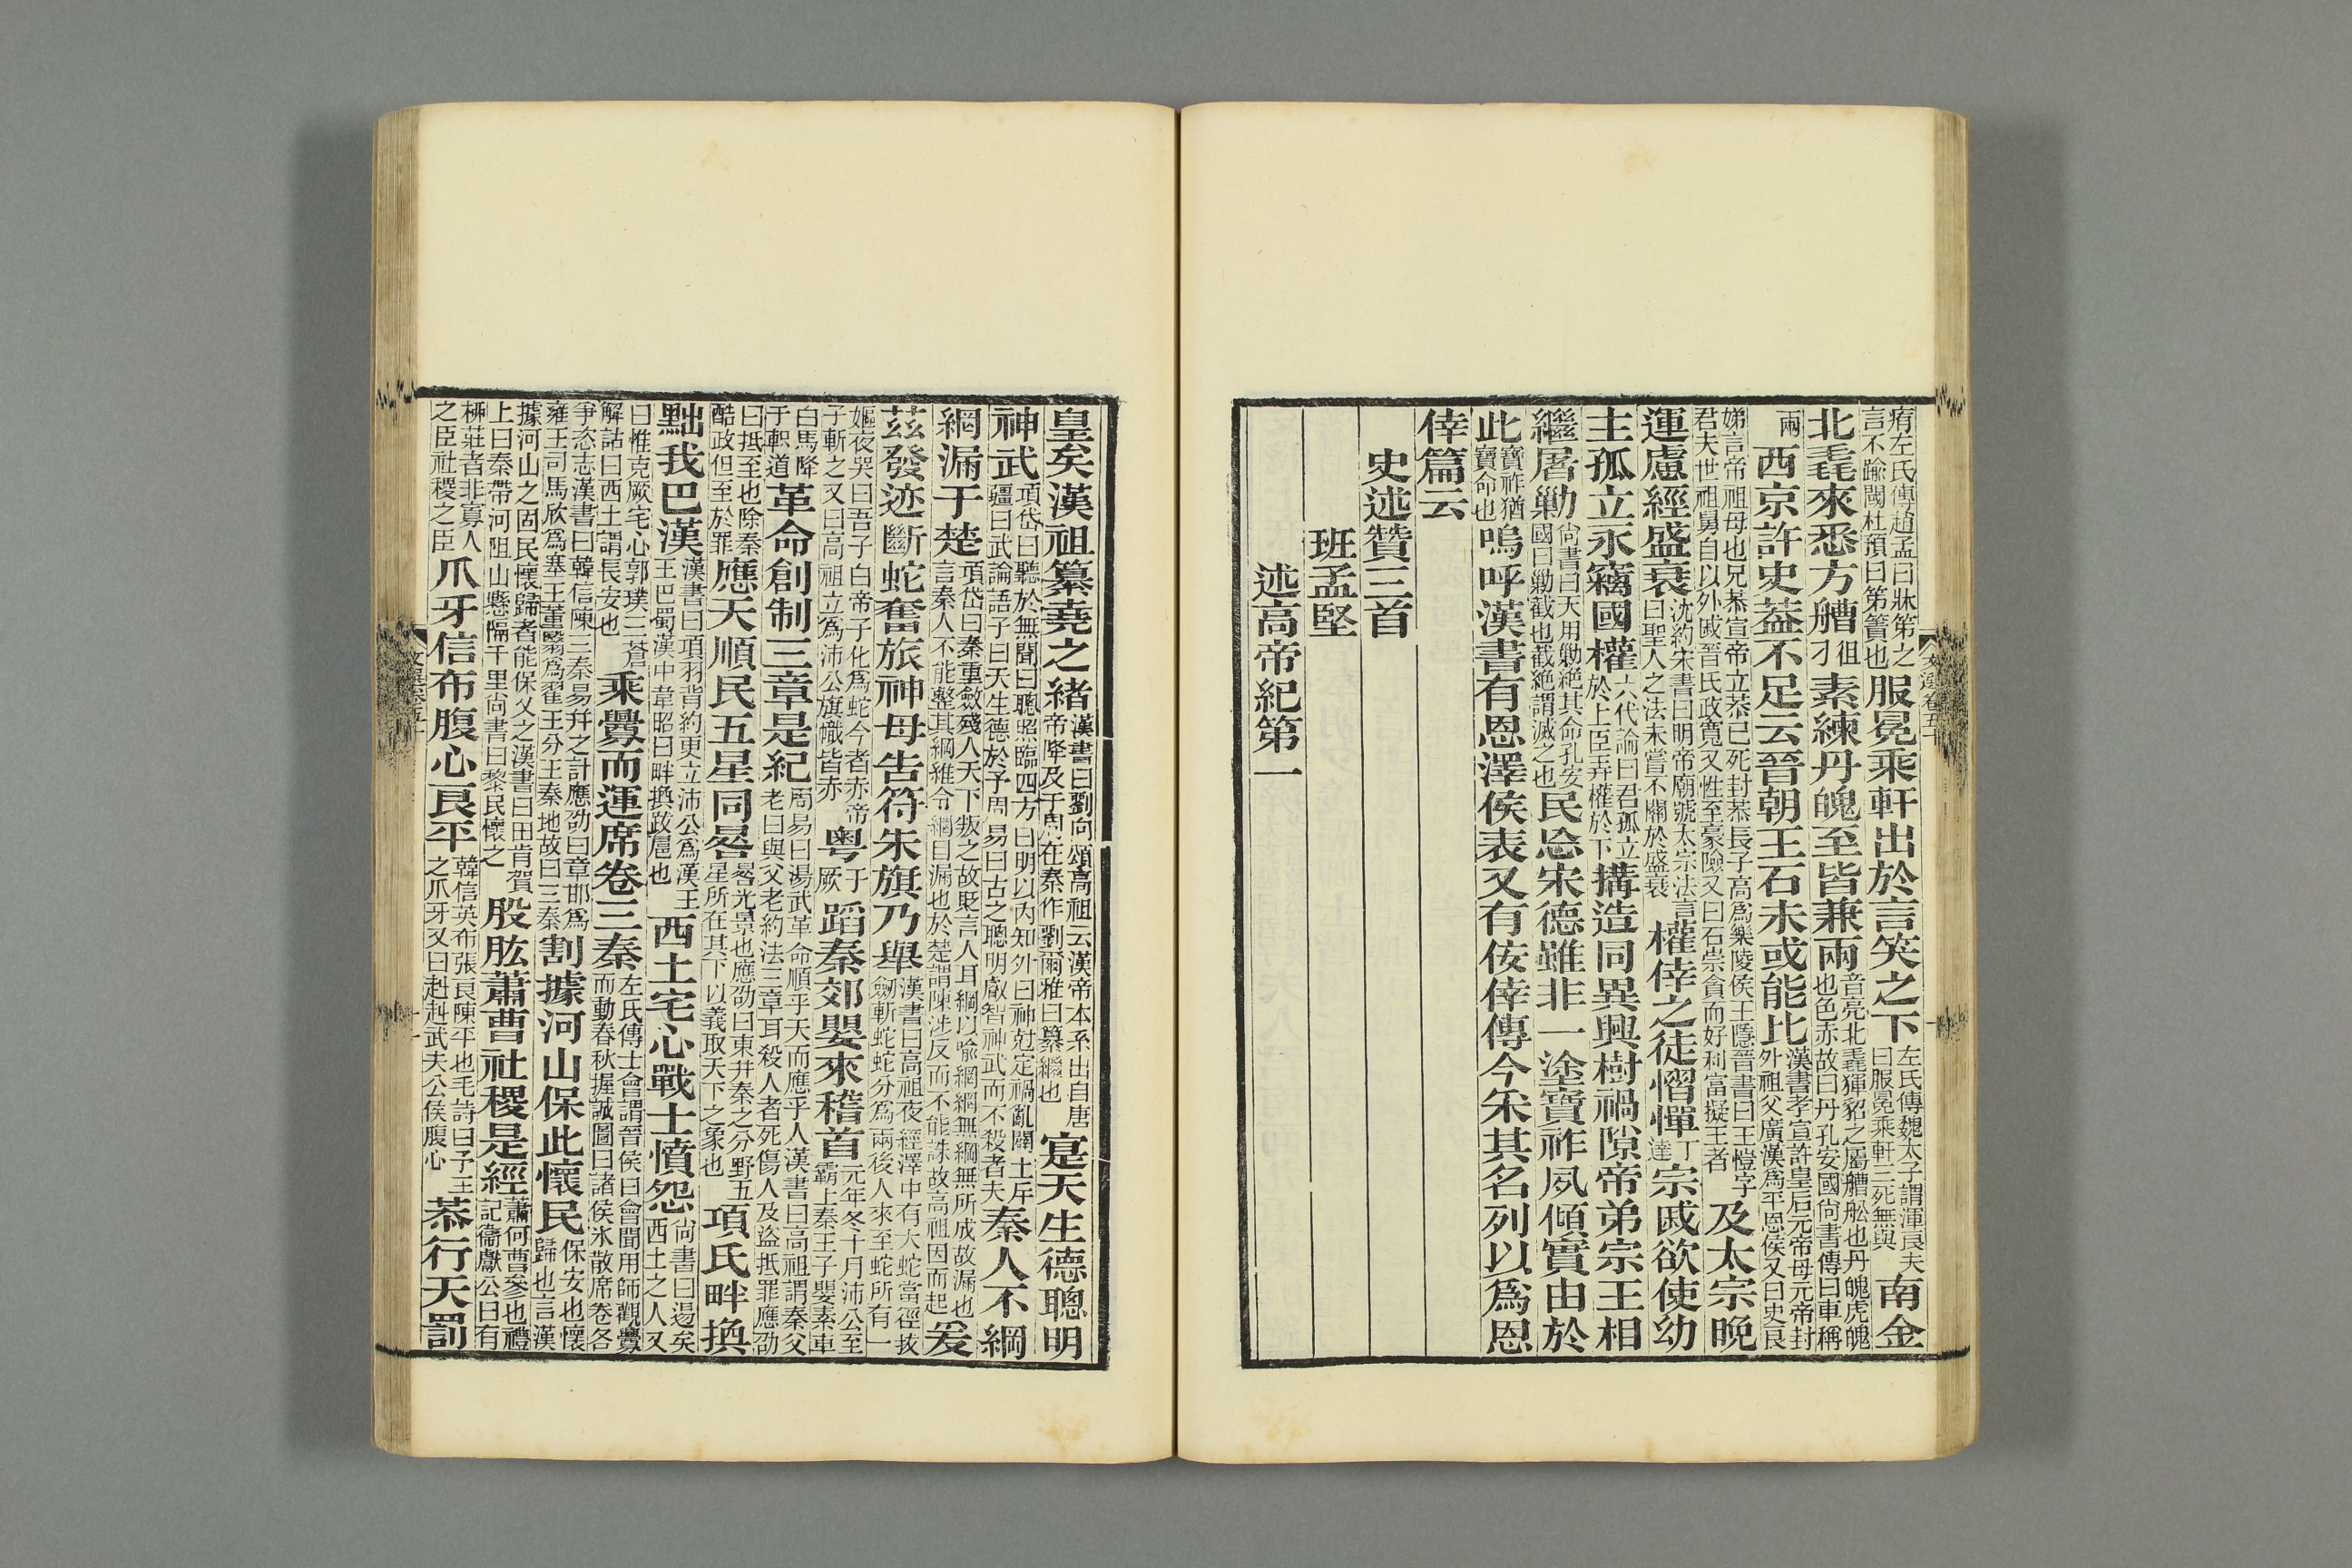 痏左氏傳趙孟曰牀笫之言不踰閾杜預曰笫簀也服冕乘軒出於言笑之下左氏傳魏太子謂渾良夫曰服冕乘軒三死無與南金
北毳來悉方艚祖刀素練丹魄至皆兼兩音亮北毳獋貂之屬艚舩也丹魄虎魄也色赤故曰丹孔安國尚書傳曰車稱
兩西京許史葢不足云晉朝王石未或能比漢書孝宣許皇后元帝母元帝封外祖父廣漢爲平恩侯又曰史良
娣言帝祖母也兄恭宣帝立恭已死封恭長子高爲樂陵侯王隱晉書曰王愷字君夫世祖舅自以外戚晉氏政寬又性至豪險又曰石崇貪而好利富擬王者及太宗晩
運慮經盛衰沈約宋書曰明帝廟號太宗法言曰聖人之法未嘗不關於盛衰權倖之徒慴憚丁達宗戚欲使幼
主孤立永竊國權六代論曰君孤立於上臣弄權於下搆造同異興樹禍隙帝弟宗王相
繼屠勦尙書曰天用勦絶其命孔安國曰勦截也截絶謂滅之也民忘宋德雖非一塗寶祚夙傾實由於
此寶祚猶寶命也嗚呼漢書有恩澤侯表又有佞倖傳今采其名列以爲恩
倖篇云
史述贊三首
班孟堅
述高帝紀第一
文選卷五十
皇矣漢祖纂堯之緒漢書曰劉向頌高祖云漢帝本系出自唐帝降及于周在秦作劉爾雅曰纂繼也寔天生德聰明
神武項岱曰聽於無聞曰聰照臨四方曰明以內知外曰神尅定禍亂闢土斥疆曰武論語子曰天生德於予周易曰古之聰明叡智神武而不殺者夫秦人不綱
網漏于楚項岱曰秦重斂殘人天下叛之故貶言人耳綱以喩網網無綱無所成故漏也言秦人不能整其綱維令網目漏也於楚謂陳涉反而不能誅故高祖因而起爰
茲發迹斷蛇奮旅神母告符朱旗乃舉漢書曰高祖夜經澤中有大蛇當徑拔劒斬蛇蛇分爲兩後人來至蛇所有一
嫗夜哭曰吾子白帝子化爲蛇今者赤帝子斬之又曰高祖立爲沛公旗幟皆赤粤于厥蹈秦郊嬰來稽首元年冬十月沛公至霸上秦王子嬰素車
白馬降于軹道革命創制三章是紀周易曰湯武革命順乎天而應乎人漢書曰高祖謂秦父老曰與父老約法三章耳殺人者死傷人及盜抵罪應劭
曰抵至也除秦酷政但至於罪應天順民五星同晷晷光景也應劭曰東井秦之分野五星所在其下以義取天下之象也項氏畔換
黜我巴漢漢書曰項羽背約更立沛公爲漢王王巴蜀漢中韋昭曰畔換跋扈也西土宅心戰士憤怨尙書曰逷矣西土之人又
曰惟克厥宅心郭璞三蒼解詁曰西土謂長安也乘釁而運席卷三秦左氏傳士會謂晉侯曰會聞用師觀釁而動春秋握誠圖曰諸侯冰散席卷各
爭恣志漢書曰韓信陳三秦易幷之計應劭曰章邯爲雍王司馬欣爲塞王董翳爲翟王分王秦地故曰三秦割據河山保此懷民保安也懷歸也言漢
據河山之固民懷歸者能保父之漢書曰田肯賀上曰秦帶河阻山懸隔千里尙書曰黎民懷之股肱蕭曹社稷是經蕭何曹參也禮記衞獻公曰有
柳莊者非寡人之臣社稷之臣爪牙信布腹心良平韓信英布張良陳平也毛詩曰予王之爪牙又曰赳赳武夫公侯腹心恭行天罰